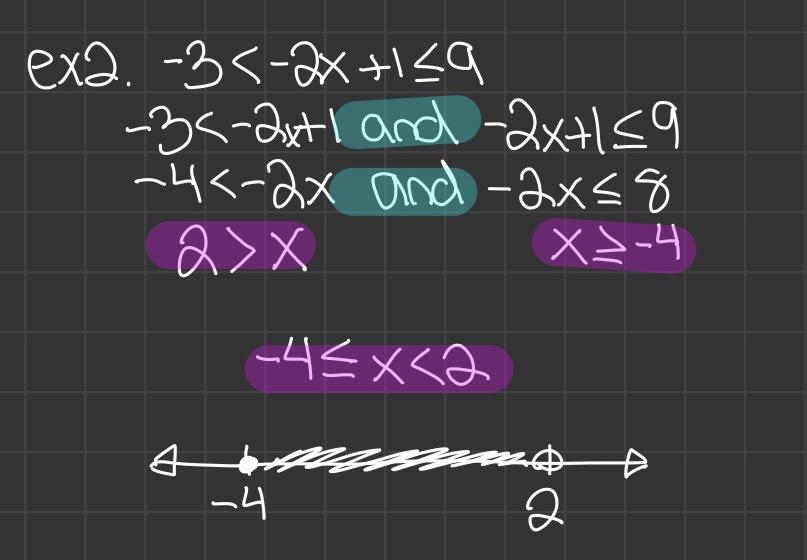 ex2. -3<-2x+1≤9
-3<-2x+1 and -2x+1≤9
-4<-2x and -2x≤8
2>x x≥-4
-4≤x<2
-4 2